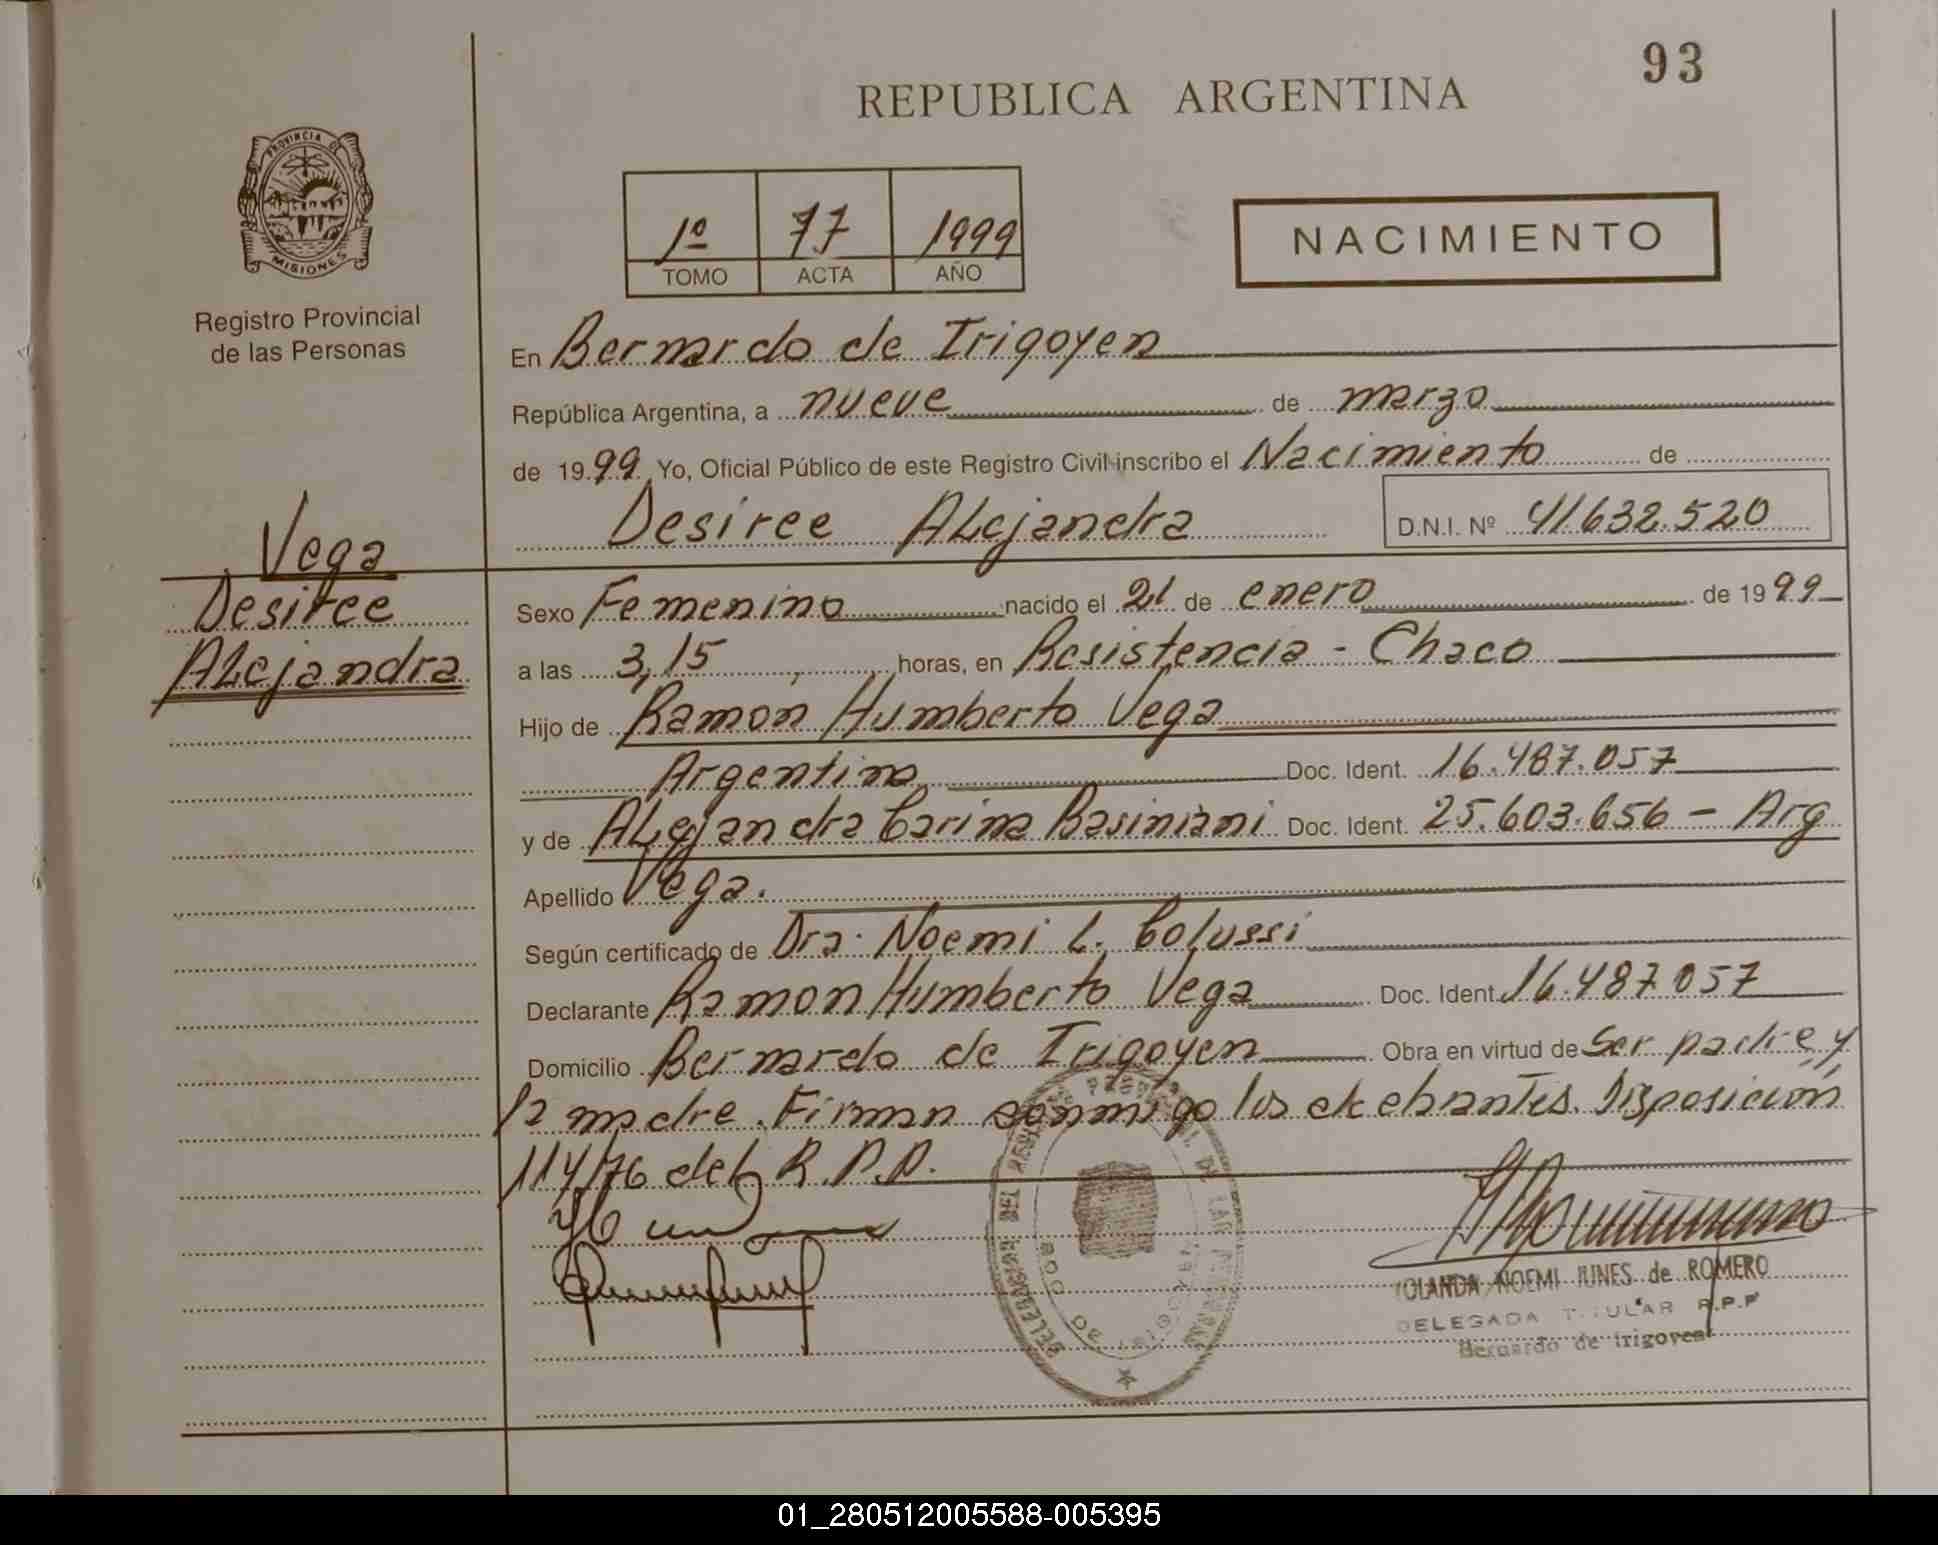 93
REPUBLICA ARGENTINA
PROVINCIA DE
MISIONES
1º 77 1999
TOMO ACTA AÑO
NACIMIENTO
Registro Provincial
de las Personas
En Bernardo de Irigoyen
República Argentina, a nueve de marzo
de 1999 Yo, Oficial Público de este Registro Civil inscribo el Nacimiento de
Desiree ALejandra D.N.I. Nº 41632.520
Vega
Desiree
ALejandra
Sexo Femenino nacido el 21 de enero de 1999
a las 3,15 horas, en Resistencia - Chaco
Hijo de Ramon Humberto Vega
Argentino Doc. Ident. 16.487.057
y de ALejandra Carina Basiniani Doc. Ident. 25.603.656 - Arg
Apellido Vega.
Según certificado de Dra. Noemi L. Colussi
Declarante Ramon Humberto Vega Doc. Ident. 16.487057
Domicilio Bernardo de Irigoyen Obra en virtud de Ser padre y
la madre. Firman conmigo los declarantes. Disposición
114/76 del R.P.P.
YOLANDA NOEMI de ROMERO
DELEGADA TITULAR R.P.P
Bernardo de Irigoyen
01_280512005588-005395